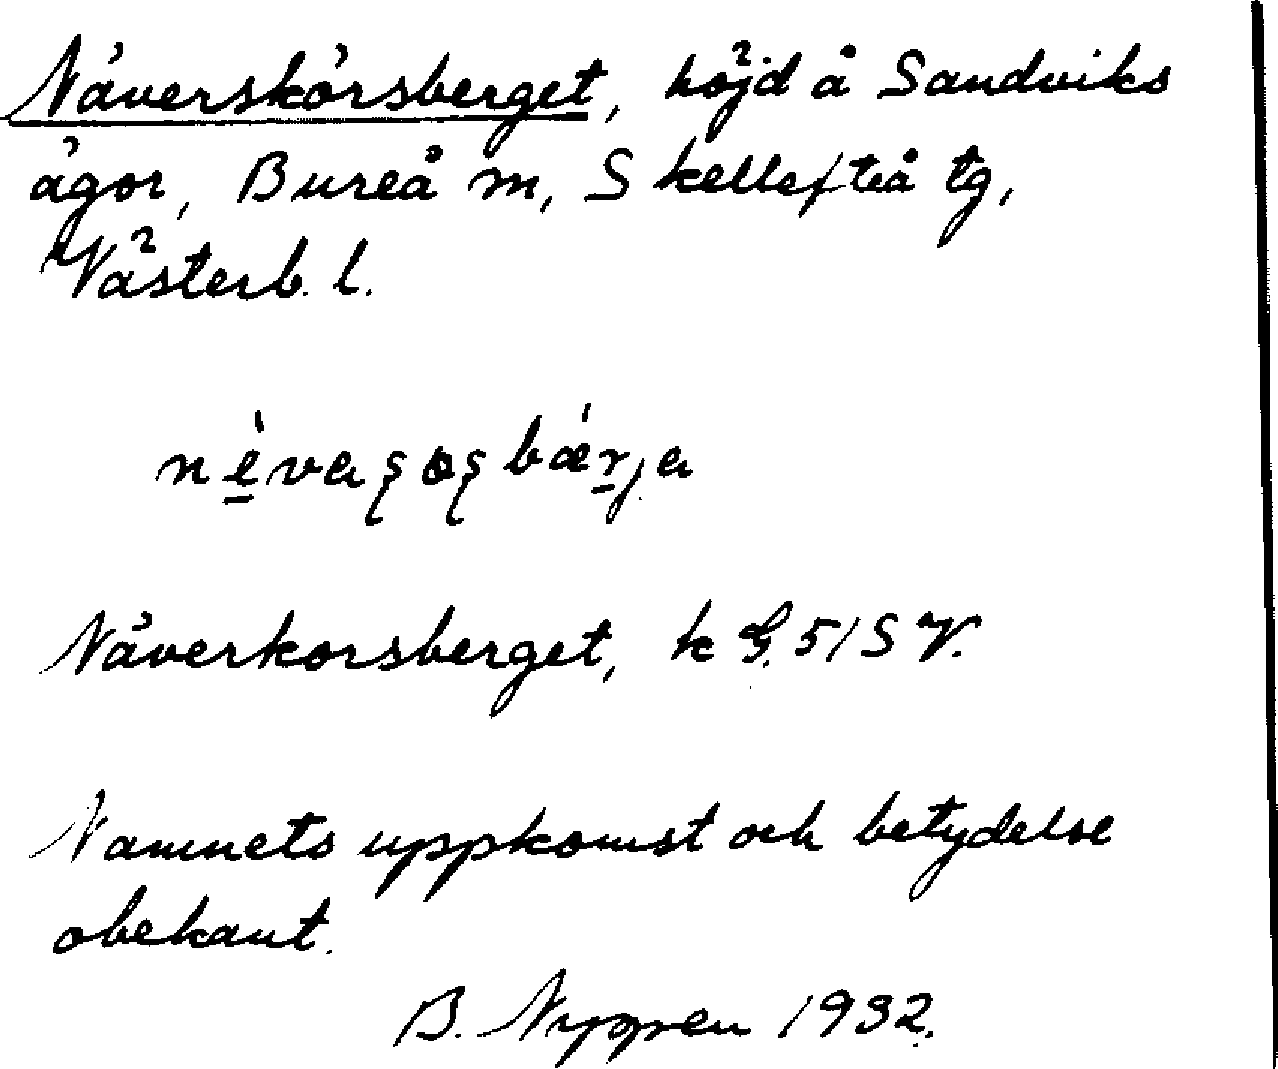 Näverskörsberget, höjd å Sandviks
ägor, Bureå m, Skellefteå tg,
Västerb. l.
Näverkorsberget, k G. 51 SV.
Namnets uppkomst och betydelse
obekant.
B. Nygren 1932.